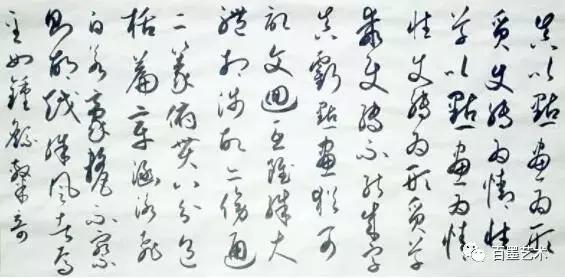 真以點畫為形
質使轉為情性
草以點畫為情
性使轉為形質草
乖使轉不能成字
真虧點畫猶可
記文迴互雖殊大
體相涉故亦傍通
二篆俯貫八分包
括篇章涵泳飛
白若豪釐不察
則胡越殊風者焉
至如鍾繇隸奇
百墨艺术